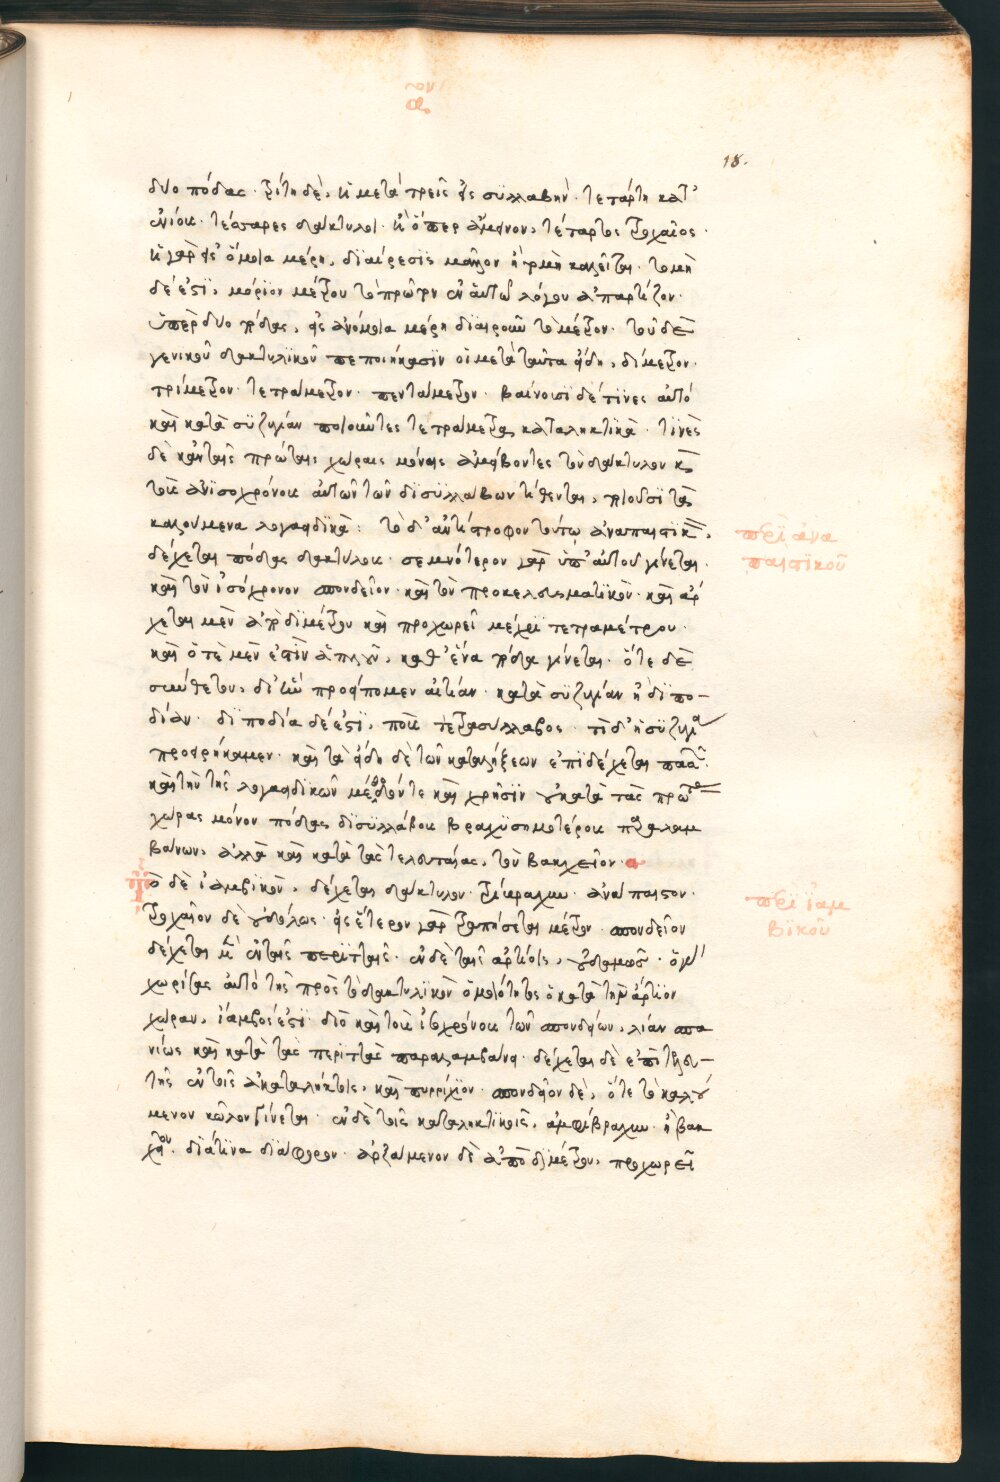 18.
δύο πόδας· τρίτη δὲ, ἡ μετὰ τρεῖς εἰς συλλαβήν· τετάρτη κατ'
ἐνίους· τέσσαρες δάκτυλοι· ἢ ὅπερ ἄμεινον, τέταρτος τροχαῖος·
ἡ γὰρ εἰς ὅμοια μέρη, διαίρεσις μᾶλλον ἢ τομὴ καλεῖται· τομὴ
δέ ἐστι, μόριον μέτρου τὸ πρῶτον ἐν αὐτῷ λόγου ἀπαρτίζον·
ὑπὲρ δύο πόδας, εἰς ἀνόμοια μέρη διαιροῦν τὸ μέτρον· τοῦ δὲ
γενικοῦ δακτυλικοῦ πεποιήκασιν οἱ μετὰ ταῦτα εἴδη, δίμετρον·
τρίμετρον· τετράμετρον· πεντάμετρον· βαίνουσι δέ τινες αὐτὸ
καὶ κατὰ συζυγίαν ποιοῦντες τετράμετρα καταληκτικά· τινὲς
δὲ κἀν ταῖς πρώταις χώραις μόναις ἀμείβοντες τὸν δάκτυλον καὶ
τοῖς ἀνισοχρόνοις αὐτῶν τῶν δισυλλάβων τίθενται, ποιοῦσι τὰ
καλούμενα λογαοιδικά: τὸ δ' ἀντίστροφον τούτῳ ἀναπαιστικὸν,
δέχεται πόδας δακτύλους· σεμνότερον γὰρ ὑπ' αὐτοῦ γίνεται·
καὶ τὸν ἰσόχρονον σπονδεῖον· καὶ τὸν προκελευσματικόν· καὶ ἄρ
χεται μὲν ἀπὸ διμέτρου καὶ προχωρεῖ μέχρι τετραμέτρου·
καὶ ὁτὲ μὲν ἐστὶν ἁπλοῦν, καθ' ἕνα πόδα γίνεται· ὅτε δὲ
σύνθετον, δι' ἣν προείπομεν αἰτίαν· κατὰ συζυγίαν ἢ διπο-
δίαν· διποδία δέ ἐστι, ποὺς τετρασύλλαβος· τί δ' ἡ συζυγία
προειρήκαμεν· καὶ τὰ εἴδη δὲ τῶν καταλήξεων ἐπιδέχεται
καὶ τὴν τῆς λογαοιδικῶν μέθοδόν τε καὶ χρῆσιν οὐ κατὰ τὰς πρώ
χώρας μόνον πόδας δισυλλάβους βραχυσημοτέρους παραλαμ
βάνων, ἀλλὰ καὶ κατὰ τὰς τελευταίας, τὸν βακχεῖον·
τὸ δὲ ἰαμβικὸν, δέχεται δάκτυλον· τρίβραχυν· ἀνάπαιστον·
τροχαῖον δὲ οὐδόλως· εἰς ἕτερον γὰρ τραπήσεται μέτρον· σπονδεῖον
δέχεται μὲν ἐν ταῖς περιτταῖς· ἐν δὲ ταῖς ἀρτίοις, οὐδαμῶς·
χωρίζει αὐτὸ τῆς πρὸς τὸ δακτυλικὸν ὁμοιότητος ὁ κατὰ τὴν ἄρτιον
χώραν, ἴαμβος ἐστί· διὸ καὶ τοὺς ἰσοχρόνους τῶν σπονδείων, λίαν σπα
νίως καὶ κατὰ τὰς περιττὰς παραλαμβάνει· δέχεται δὲ ἐπὶ τελευ-
τῆς ἐν τοῖς ἀκαταλήκτοις, καὶ πυρρίχιον· σπονδεῖον δὲ, ὅτε τὸ καλού
μενον κῶλον γίνεται· ἐν δὲ τοῖς καταληκτικοῖς, ἀμφίβραχυν· ἢ βακ
χεῖον· διά τινα διάφορον· ἀρξάμενον δὲ ἀπὸ διμέτρου, προχωρεῖ
περὶ ἀνα
παιστικοῦ
περὶ ἰαμ
βικοῦ